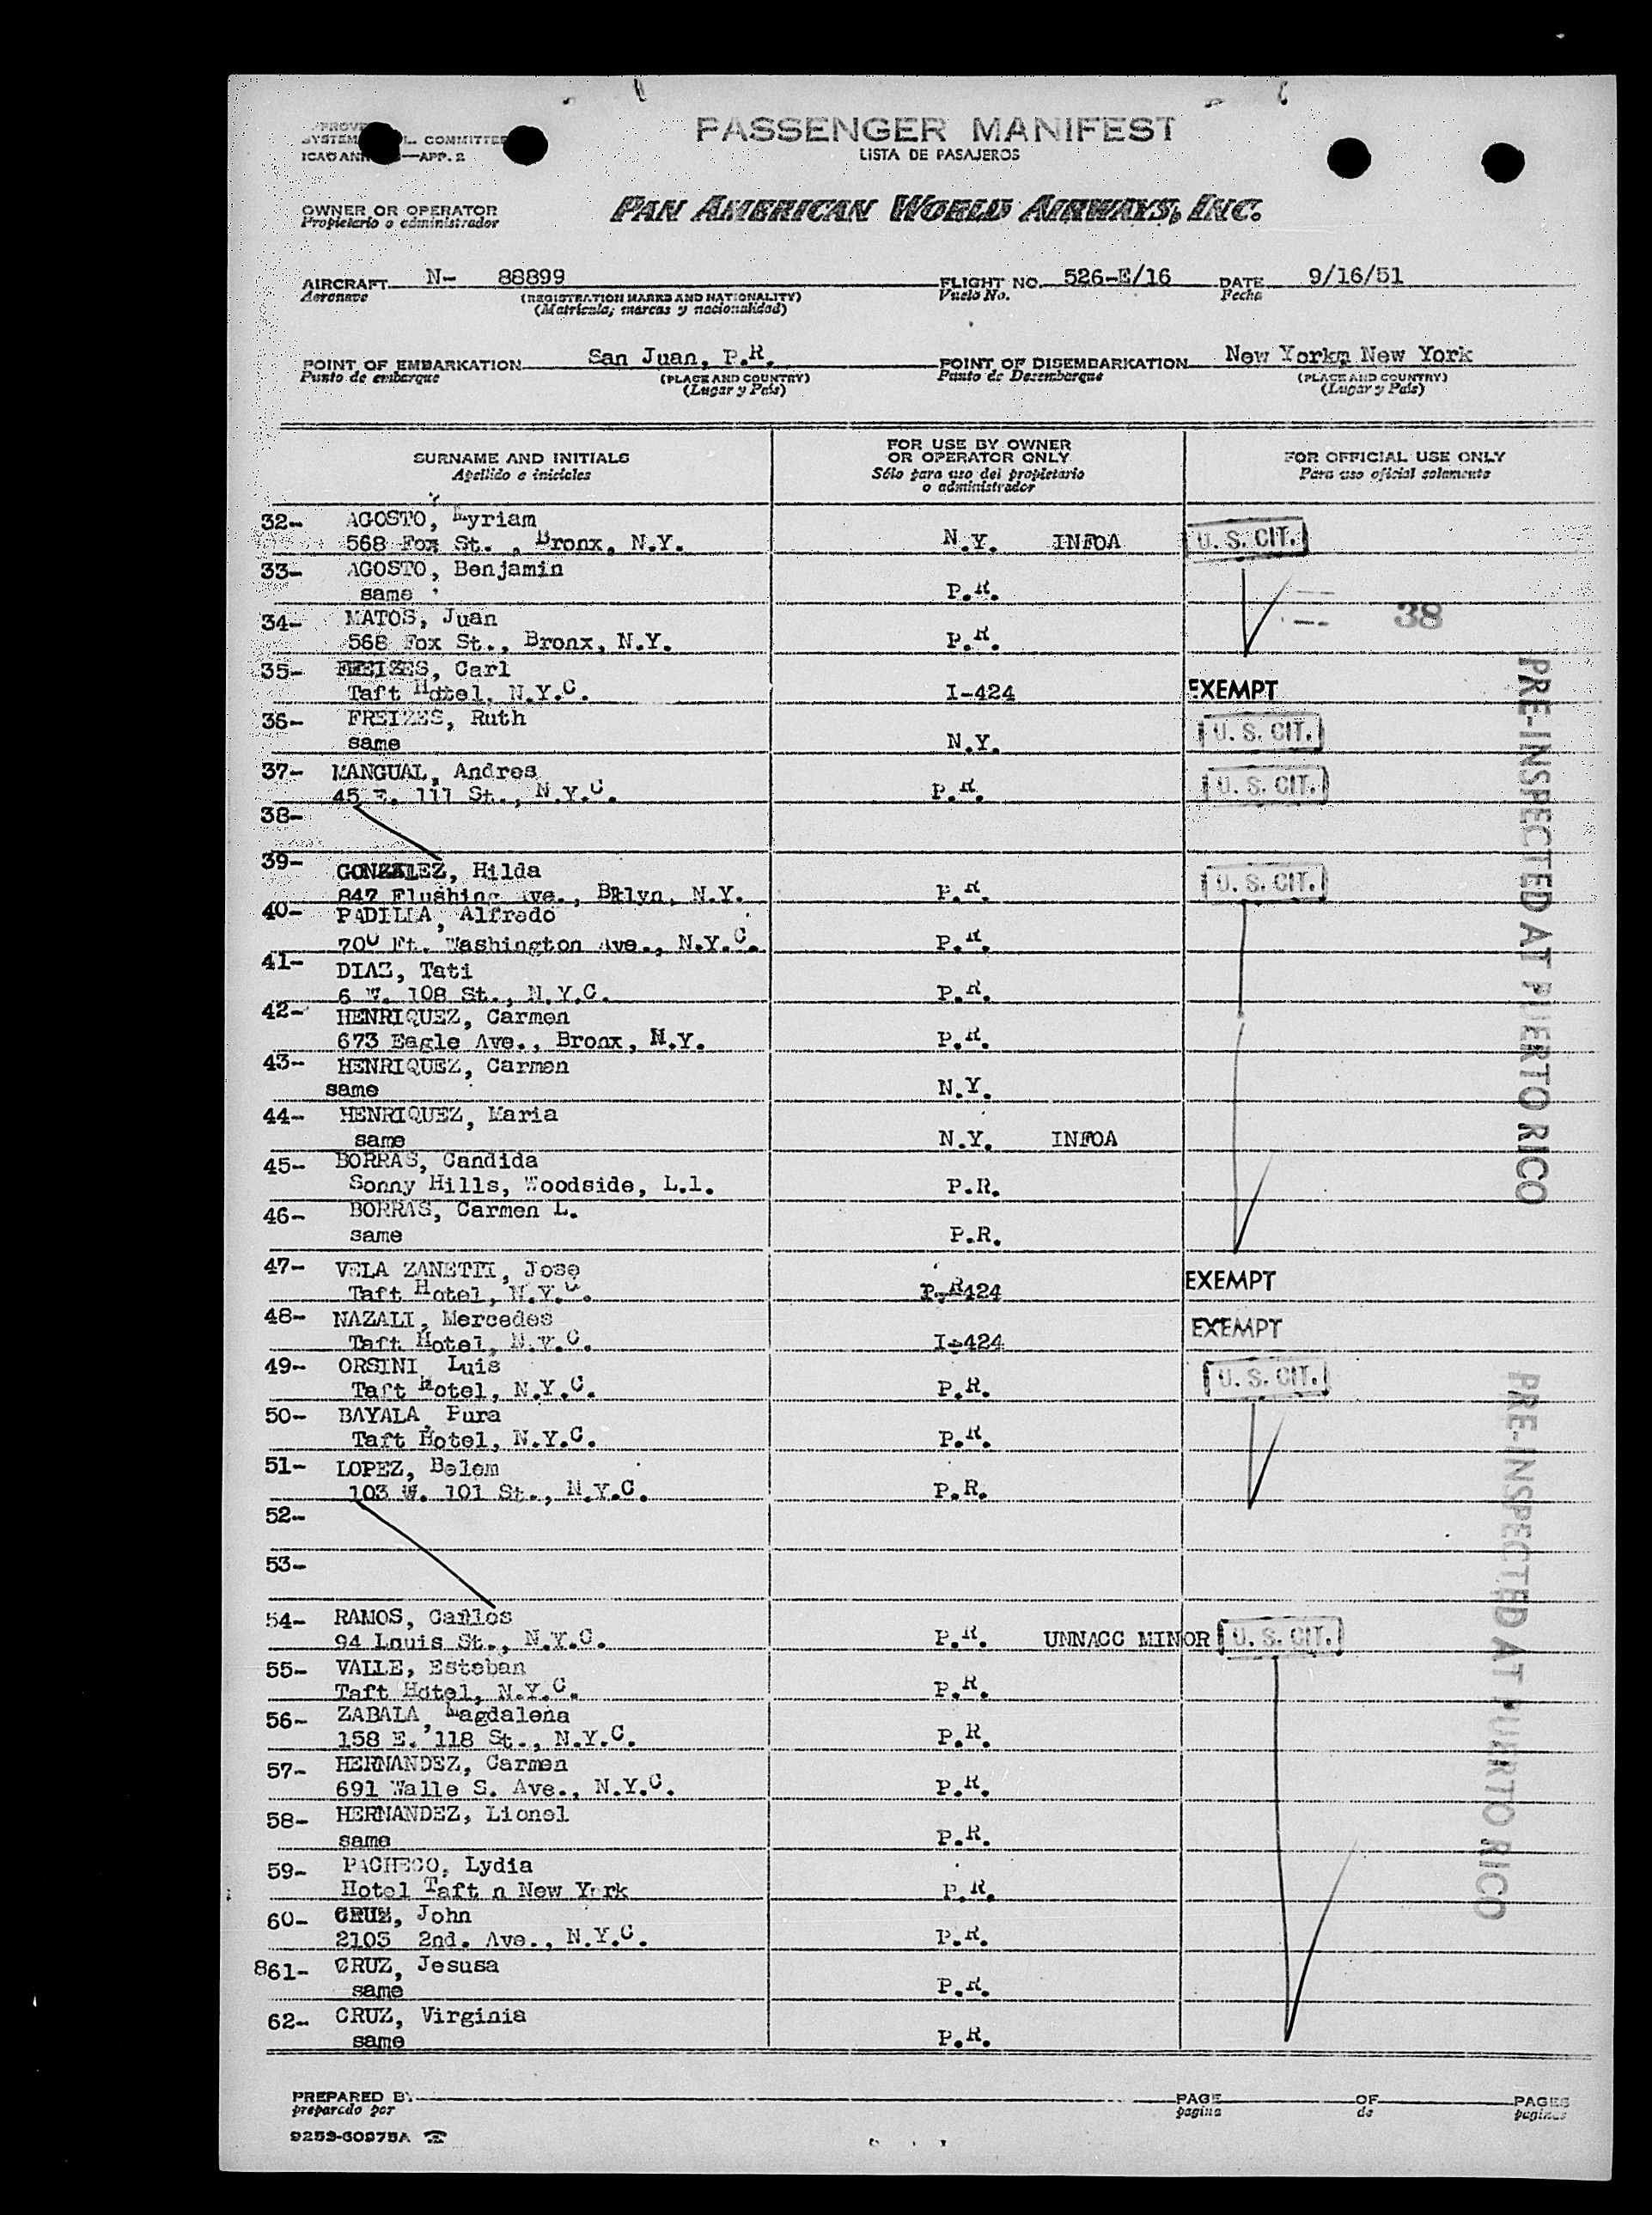 PASSENGER MANIFEST
LISTA DE PASAJEROS
COMMITTEE
—APP. 2
OWNER OR OPERATOR
Propietario o administrador
PAN AMERICAN WORLD AIRWAYS, INC.
AIRCRAFT N- 88899 FLIGHT NO. 526-E/16 DATE 9/16/51
Aeronave (REGISTRATION MARKS AND NATIONALITY) Vuelo No. Fecha
(Matrícula, marcas y nacionalidad)
POINT OF EMBARKATION San Juan, P.R. POINT OF DISEMBARKATION New Yorkm New York
Punto de embarque (PLACE AND COUNTRY) Punto de Desembarque (PLACE AND COUNTRY)
(Lugar y País) (Lugar y País)
SURNAME AND INITIALS FOR USE BY OWNER OR OPERATOR ONLY FOR OFFICIAL USE ONLY
Apellido e iniciales Sólo para uso del propietario o administrador Para uso oficial solamente
32- AGOSTO, Myriam
568 Fox St. , Bronx, N.Y. N.Y. INFOA U. S. CIT.
33- AGOSTO, Benjamin
same P.R.
38
34- MATOS, Juan
568 Fox St., Bronx, N.Y. P.R.
35- FREIZES, Carl
Taft Hotel, N.Y.C. I-424 EXEMPT
36- FREIZES, Ruth
same N.Y. U. S. CIT.
37- MANGUAL, Andres
45 E. 111 St., N.Y.C. P.R. U. S. CIT.
38-
39- GONZALEZ, Hilda
847 Flushing Ave., Bklyn, N.Y. P.R. U. S. CIT.
40- PADILLA, Alfredo
700 Ft. Washington Ave., N.Y.C. P.R.
41- DIAZ, Tati
6 W. 108 St., N.Y.C. P.R.
42- HENRIQUEZ, Carmen
673 Eagle Ave., Bronx, N.Y. P.R.
43- HENRIQUEZ, Carmen
same N.Y.
44- HENRIQUEZ, Maria
same N.Y. INFOA
45- BORRAS, Candida
Sonny Hills, Woodside, L.l. P.R.
46- BORRAS, Carmen L.
same P.R.
47- VELA ZANETTI, Jose
Taft Hotel, N.Y.C. 424 EXEMPT
48- NAZALI, Mercedes
Taft Hotel, N.Y.C. I-424 EXEMPT
49- ORSINI, Luis
Taft Hotel, N.Y.C. P.R. U. S. CIT.
50- BAYALA, Pura
Taft Hotel, N.Y.C. P.R.
51- LOPEZ, Belem
103 W. 101 St., N.Y.C. P.R.
52-
53-
54- RAMOS, Carlos
94 Louis St., N.Y.C. P.R. UNNACC MINOR U. S. CIT.
55- VALLE, Esteban
Taft Hotel, N.Y.C. P.R.
56- ZABALA, Magdalena
158 E. 118 St., N.Y.C. P.R.
57- HERNANDEZ, Carmen
691 Walle S. Ave., N.Y.C. P.R.
58- HERNANDEZ, Lionel
same P.R.
59- PACHECO, Lydia
Hotel Taft n New York P.R.
60- CRUZ, John
2103 2nd. Ave., N.Y.C. P.R.
861- CRUZ, Jesusa
same P.R.
62- CRUZ, Virginia
same P.R.
PRE-INSPECTED AT PUERTO RICO
PRE-INSPECTED AT PUERTO RICO
PREPARED BY PAGE OF PAGES
preparado por pagina de paginas
9253-60975A